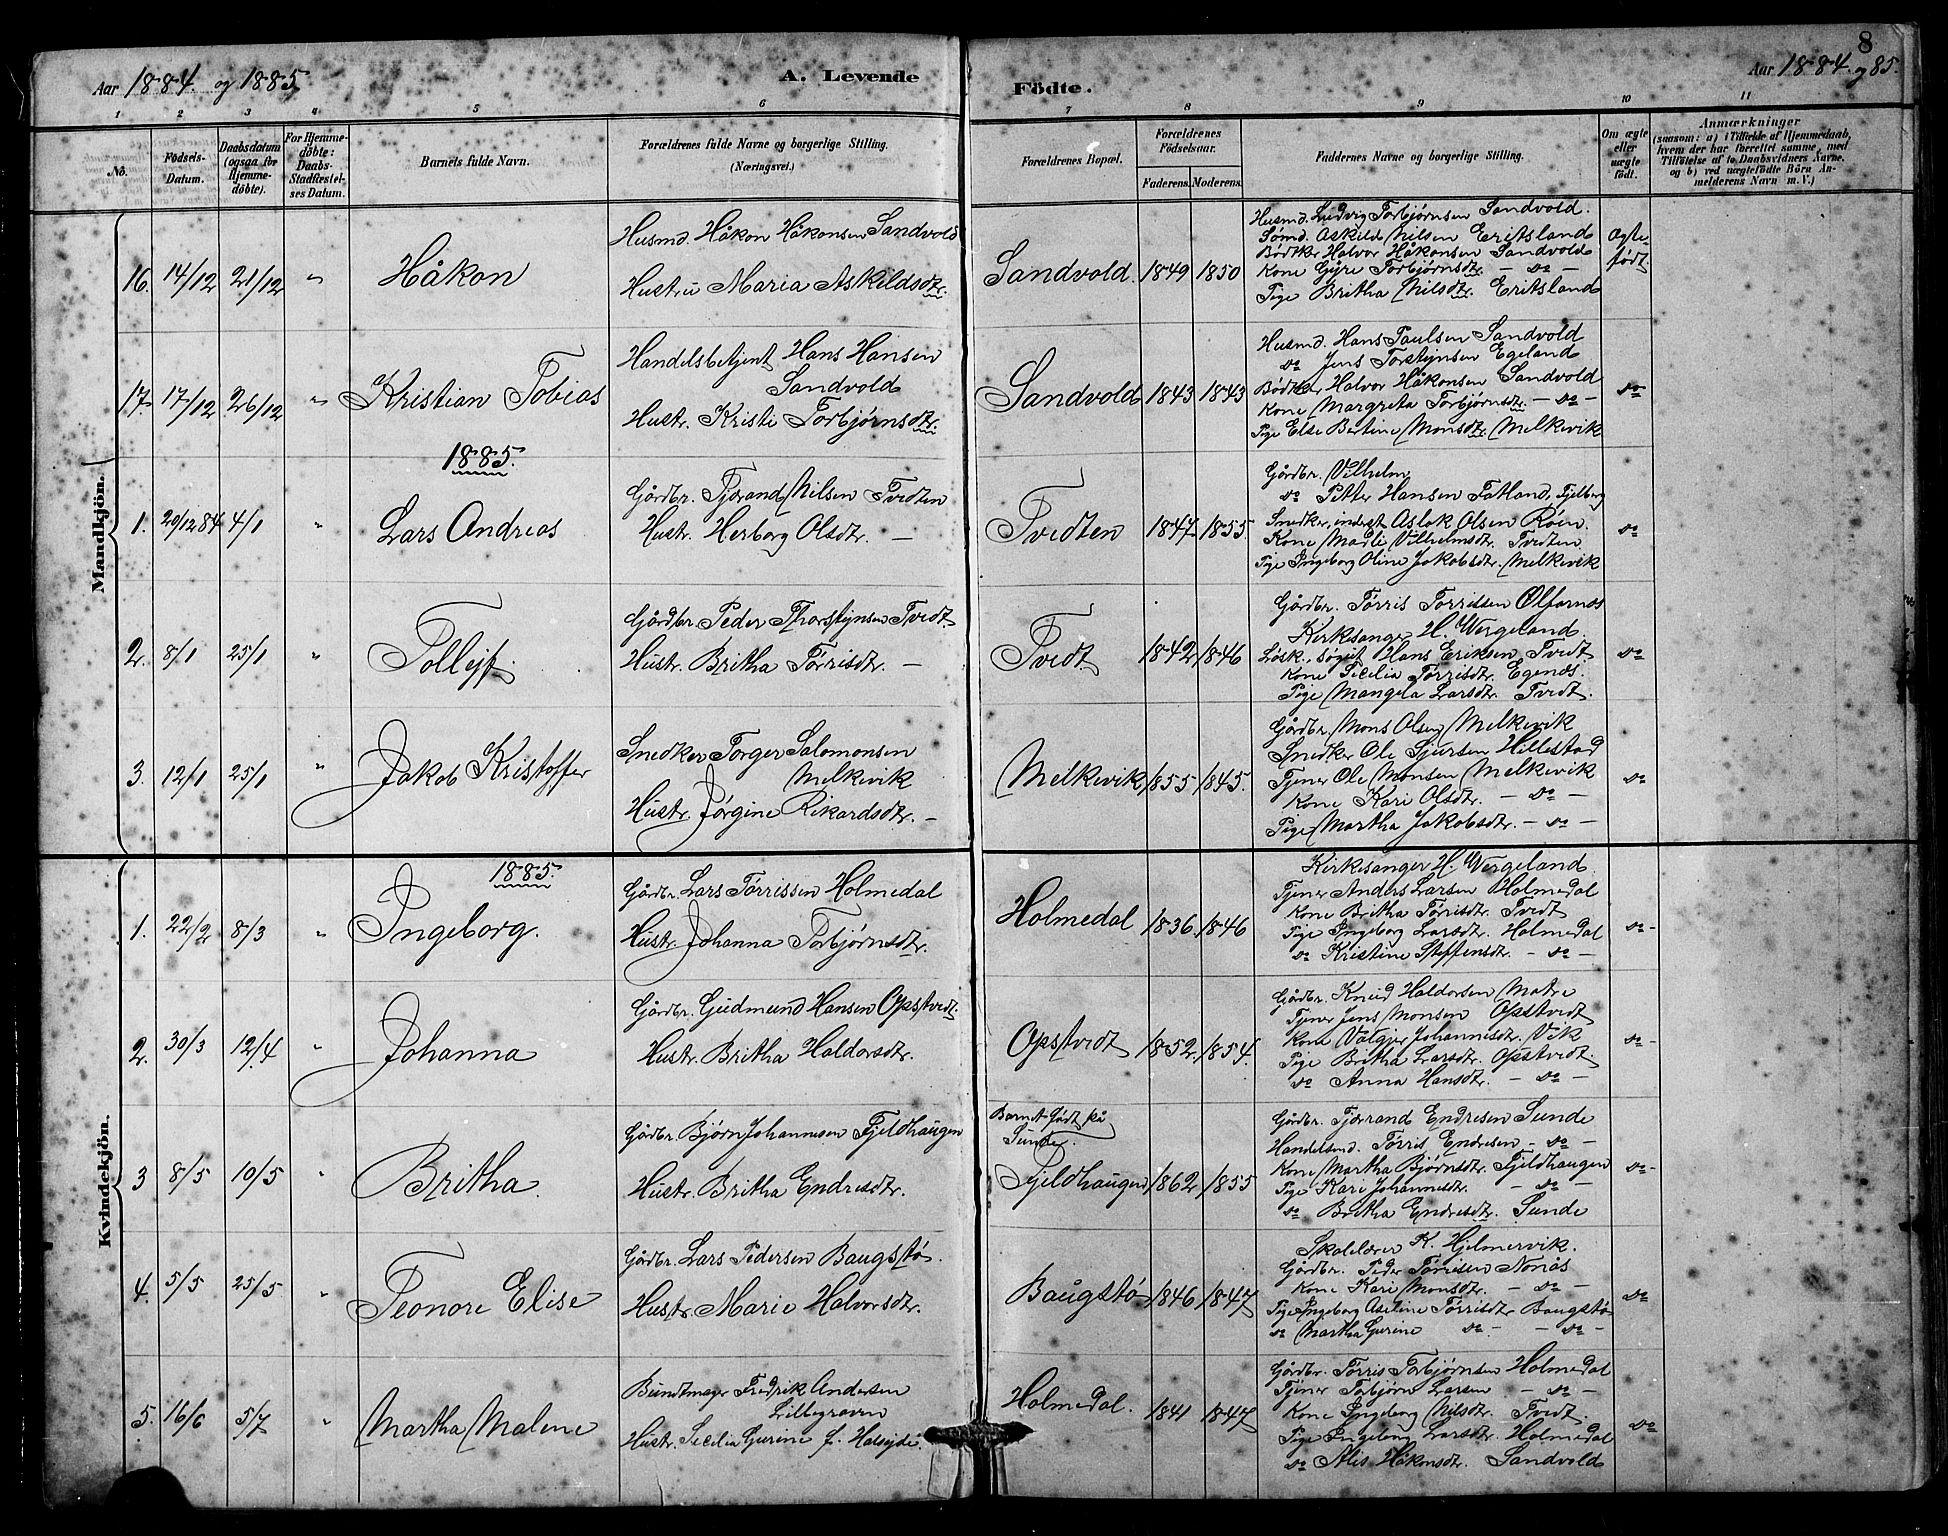 8
Aar 1884. og 1885
A. Levende Födte.
Aar 1884. og 85.
1 2 3 4 5 6 7 8 9 10 11
No.
Födsels-Datum.
Daabsdatum (ogsaa for Hjemme-döbte).
For Hjemme-döbte: Daabs-Stadfæstel-ses Datum.
Barnets fulde Navn.
Forældrenes fulde Navne og borgerlige Stilling.
(Næringsvei.)
Forældrenes Bopæl.
Forældrenes Födselsaar.
Faderens. Moderens.
Faddernes Navne og borgerlige Stilling.
Om ægte eller uægte födt.
Anmærkninger
(saasom: a) i Tilfælde af Hjemmedaab,
hvem der har forrettet samme, med
Tilföielse af to Daabsvidners Navne.
og b) ved uægtefödte Börn An-
melderens Navn m. V.)
Mandkjön.
16. 14/12 21/12 " Håkon
Husmd. Håkon Håkonsen Sandvold
Hustru Maria Askildsdtr.
Sandvold. 1849 1850
Husmd. Ludvig Torbjørnsen Sandvold.
Sømd. Askild Nilsen Eritsland
Bødker Halvor Håkonsen Sandvold
Kone Gyre Torbjørnsdtr. — do —
Pige Britha Nilsdtr. Eritsland
Ægte født
17. 17/12 26/12 " Kristian Tobias
Handelsbetjent Hans Hansen
Sandvold
Hustr. Kristi Torbjørnsdtr.
Sandvold 1843 1843
Husmd. Hans Paulsen Sandvold
do Jens Torstejnsen Egeland
Bødker Halvor Håkonsen Sandvold
Kone Margreta Torbjørnsdtr. — do —
Pige Else Bertine Monsdtr. Melkevik
do
1885.
1. 29/12 84 4/1 " Lars Andreas
Gårdbr. Tjærand Nilsen Tvedten
Hustr. Herborg Olsdtr. —
Tvedten 1847 1855.
Gårdbr. Vilhelm
do Pitter Hansen Fatland, Fjelberg
Snedker, inderst Aslak Olsen Røen
Kone Madli Vilhelmsdtr. Tvedten
Pige Ingeborg Oline Jakobsdtr. Melkevik
do
2. 8/1 25/1 " Tollejf.
Gårdbr. Peder Thorstejnsen Tvedt.
Hustr. Britha Tørrisdtr. —
Tvedt 1842 1846
Gårdbr. Tørris Torrissen Olfarnes
Kirksanger H. Wergeland.
Løsk., søgut Hans Eriksen Tvedt
Kone Cecilia Tørrisdtr. Egenes.
Pige Mangela Larsdtr. Tvedt.
do
3. 12/1 25/1 " Jakob Kristoffer
Snedker Torger Salomonsen
Melkevik
Hustr. Jørgine Rikardsdtr. —
Melkevik 1855 1845.
Gårdbr. Mons Olsen Melkevik
Snedker Ole Sjursen Hillestad
Tjener Ole Monsen Melkevik
Kone Kari Olsdtr. — do —
Pige Martha Jakobsdtr. — do —
do
Kvindekjön.
1885.
1. 22/2 8/3 " Ingeborg.
Gårdbr. Lars Tørrissen Holmedal
Hustr. Johanna Torbjørnsdtr.
Holmedal 1836 1846
Kirksanger H. Wergeland
Tjener Anders Larsen Holmedal
Kone Britha Tørrisdtr. Tvedt
Pige Ingeborg Larsdtr. Holmedal
do Kristine Steffensdtr. — do —
do —
2. 30/3 12/4 " Johanna
Gårdbr. Gudmund Hansen Opstvedt.
Hustr. Britha Haldorsdtr.
Opstvedt 1852 1854.
Gårdbr. Knud Haldorsen Matre
Tjener Jens Monsen Opstvedt
Kone Valgjer Johannisdtr. Vik
Pige Britha Larsdtr. Opstvedt.
do Anna Hansdtr. — do —
do —
3 8/5 10/5 " Britha.
Gårdbr. Bjørn Johannesen Fjeldhaugen
Hustr. Britha Endresdtr.
Barnet født på
Sunde.
Fjeldhaugen 1862 1855
Gårdbr. Tjærand Endresen Sunde
Handelsmd. Tørris Endresen — do —
Kone Martha Bjørnsdtr. Fjeldhaugen
Pige Kari Johannesdtr. — do —
do Britha Endresdtr. Sunde
do —
4. 5/5 25/5 " Teonore Elise
Gårdbr. Lars Pedersen Baugstø.
Hustr. Marie Halvorsdtr.
Baugstø 1846 1847
Skolelærer K. Hjelmervik.
Gårdbr. Peder Tørrisen Norås
Kone Kari Monsdtr. — do —
Pige Ingeborg Aseline Tørrisdtr Baugstø
do Martha Gurine do. — do —
do
5. 16/6 5/7 " Martha Malene
Buntmager Fredrik Andersen
Lillegraven
Hustr. Cecilia Gurine f. Halsejde
Holmedal. 1841 1847
Gårdbr. Tørris Torbjørnsen Holmedal
Tjener Torbjørn Larsen — do —
Kone Ingeborg Nilsdtr. Tvedt.
Pige Ingeborg Larsdtr. Holmedal
do Alis Håkonsdtr. Sandvold
do —